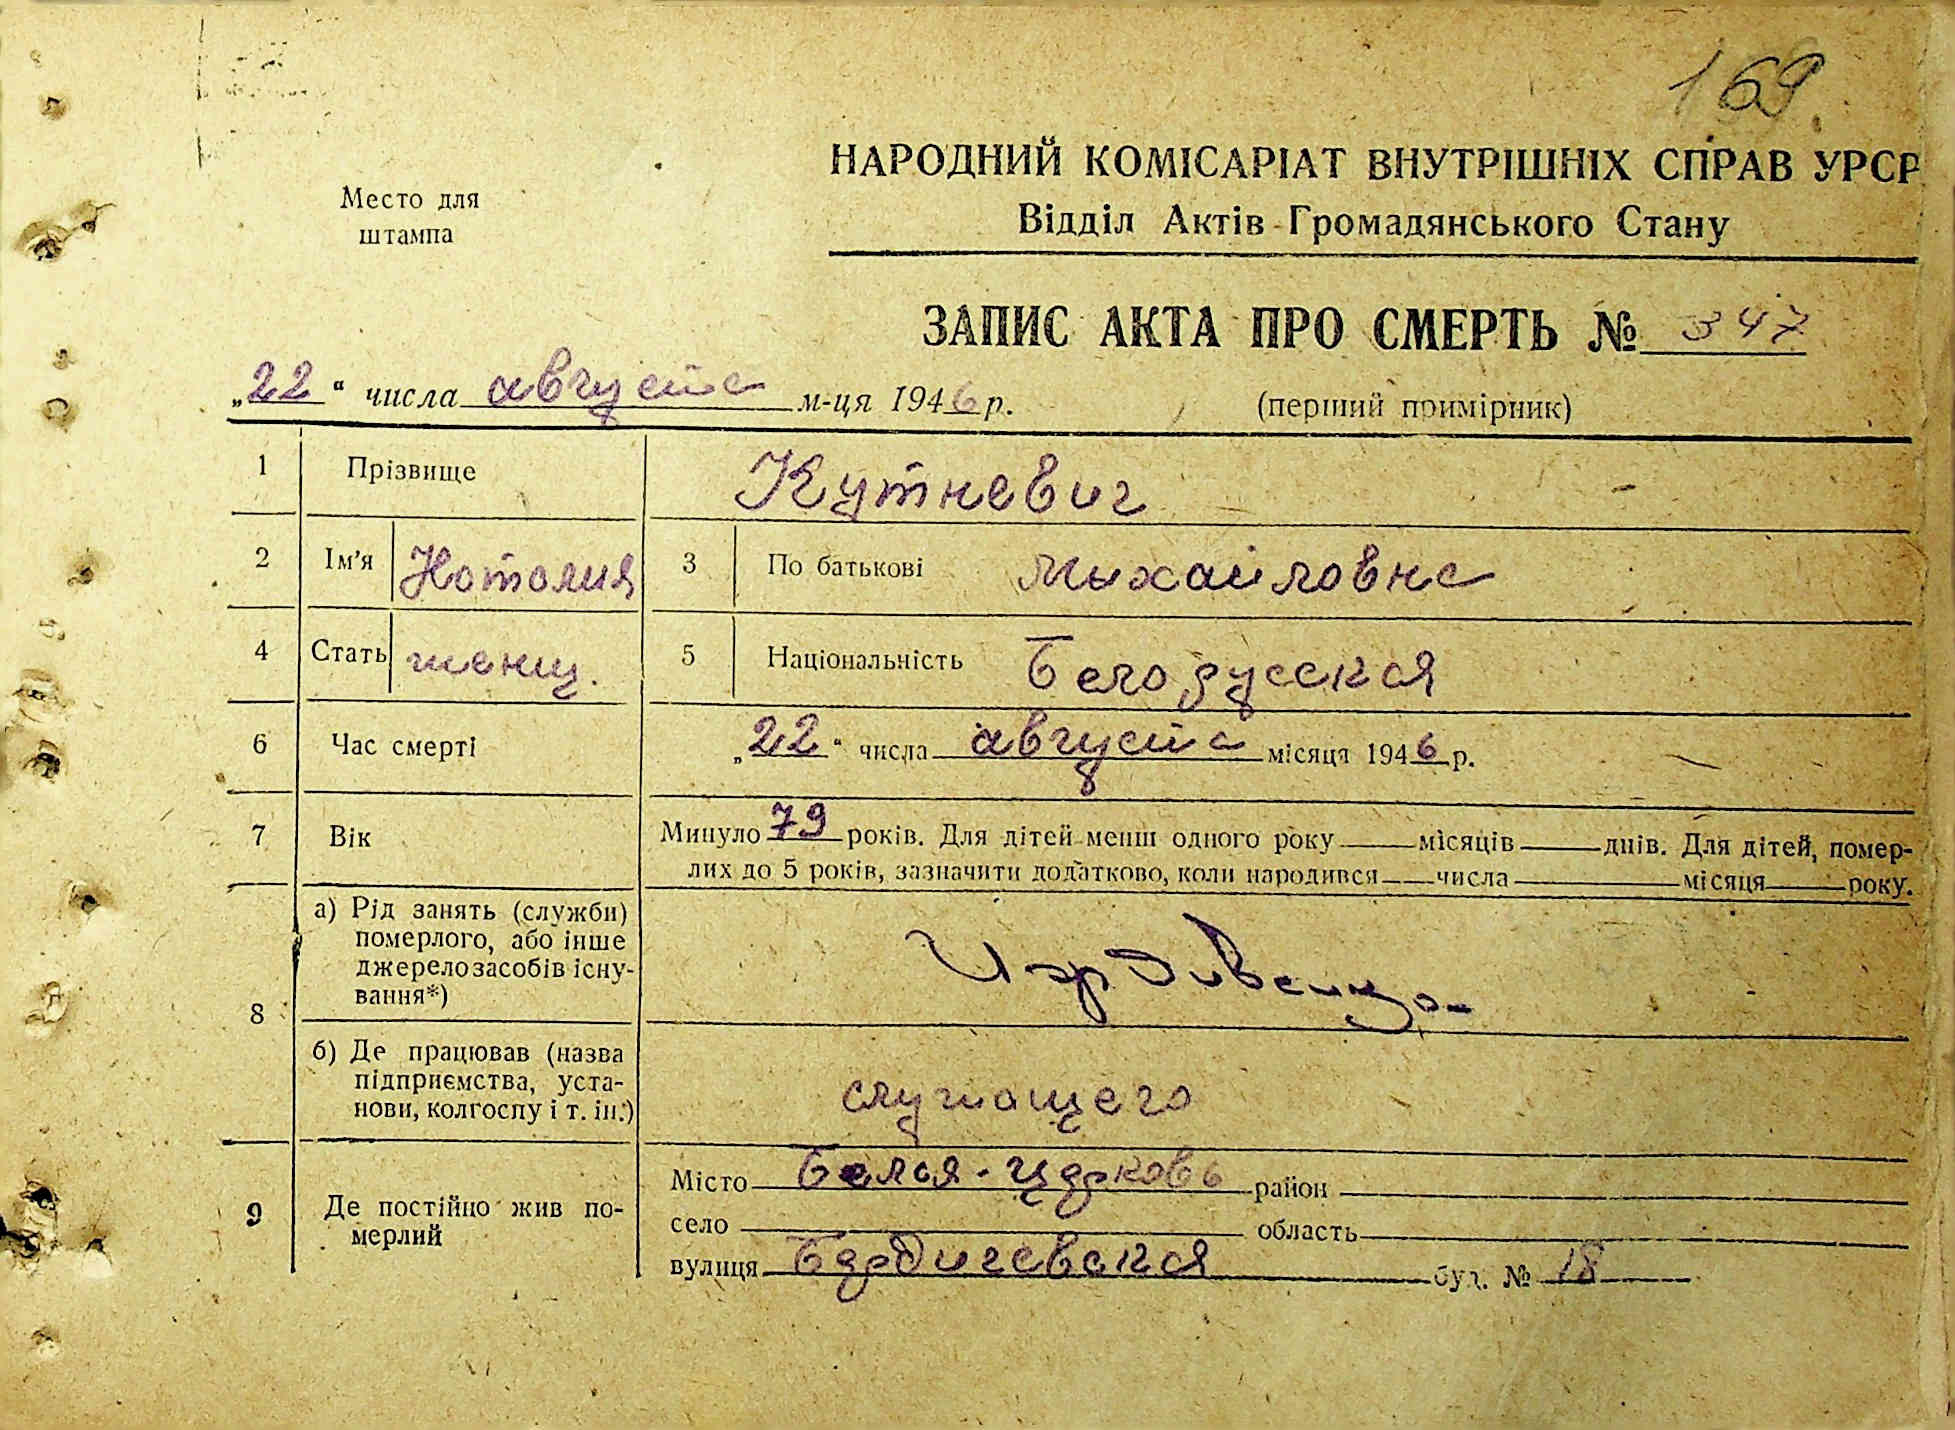 169
НАРОДНИЙ КОМІСАРІАТ ВНУТРІШНІХ СПРАВ УРСР
Відділ Актів Громадянського Стану
Место для
штампа
ЗАПИС АКТА ПРО СМЕРТЬ № 347
„22" числа августа м-ця 1946 р.
(перший примірник)
1 Прізвище Кутневич
2 Ім'я Наталия 3 По батькові Михайловна
4 Стать женщ. 5 Національність Белорусская
6 Час смерті „22" числа августа місяця 1946 р.
7 Вік Минуло 79 років. Для дітей менш одного року місяців днів. Для дітей, помер-
лих до 5 років, зазначити додатково, коли народився числа місяця року.
8 а) Рід занять (служби)
померлого, або інше
джерело засобів існу-
вання*)
Иждивенца
б) Де працював (назва
підприємства, уста-
нови, колгоспу і т. ін.)
служащего
9 Де постійно жив по-
мерлий
Місто Белая-Церковь район
село область
вулиця Бердичевская буд. № 18